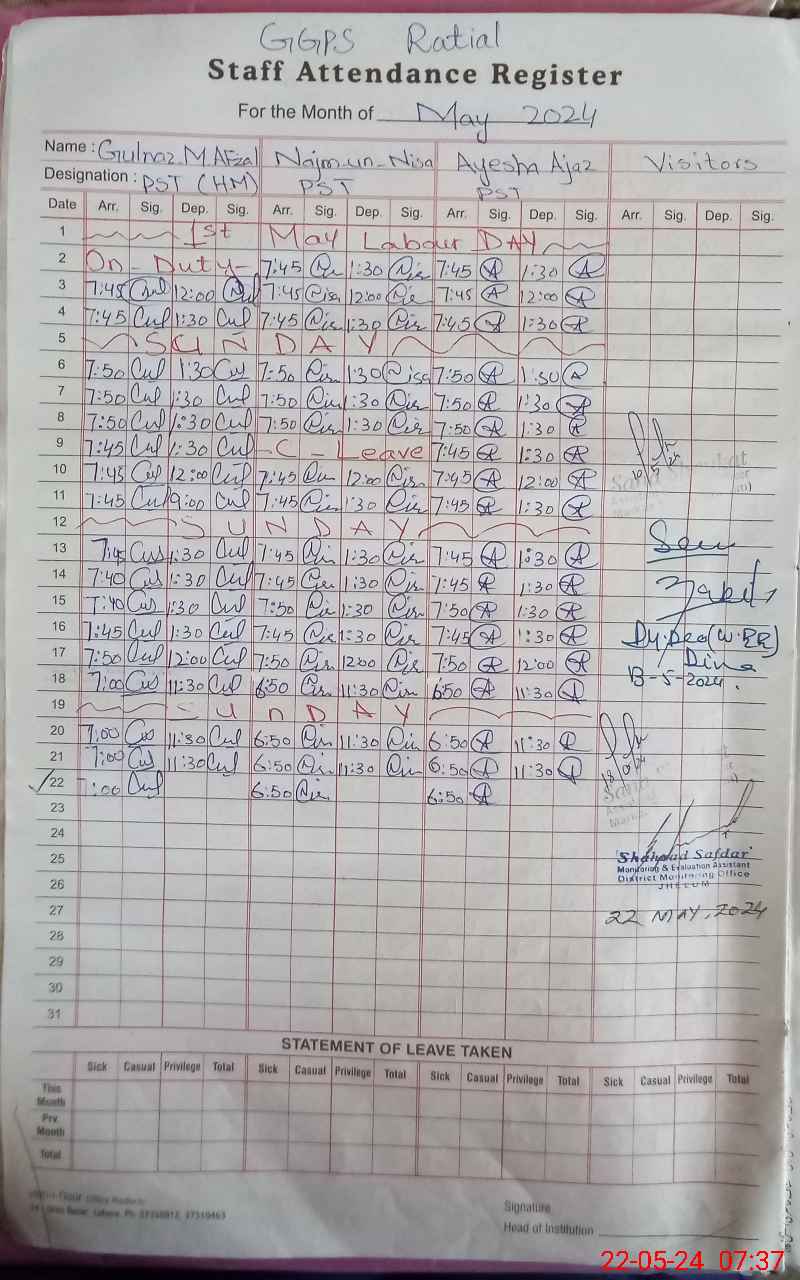 GGPS Ratial
Staff Attendance Register
For the Month of May 2024
Name : Gulnaz M.Afzal Najm-un-Nisa Ayesha Ajaz Visitors
Designation : PST (HM) PST PST
Date Arr. Sig. Dep. Sig. Arr. Sig. Dep. Sig. Arr. Sig. Dep. Sig. Arr. Sig. Dep. Sig.
1 1st May Labour DAY
2 On-Duty- 7:45 1:30 7:45 A 1:30 A
3 7:45 Gul 12:00 Gul 7:45 Nisa 12:00 7:45 A 12:00 A
4 7:45 Gul 1:30 Gul 7:45 1:30 7:45 A 1:30 A
5 SUNDAY
6 7:50 Gul 1:30 Gul 7:50 1:30 Nisa 7:50 A 1:30 A
7 7:50 Gul 1:30 Gul 7:50 1:30 7:50 A 1:30 A
8 7:50 Gul 1:30 Gul 7:50 1:30 7:50 A 1:30 A
9 7:45 Gul 1:30 Gul -C-Leave 7:45 A 1:30 A
10 7:45 Gul 12:00 Gul 7:45 12:00 7:45 A 12:00 A
11 7:45 Gul 9:00 Gul 7:45 1:30 7:45 A 1:30 A
12 SUNDAY
13 7:45 Gul 1:30 Gul 7:45 1:30 7:45 A 1:30 A
Seen
14 7:40 Gul 1:30 Gul 7:45 1:30 7:45 A 1:30 A
15 7:40 Gul 1:30 Gul 7:50 1:30 7:50 A 1:30 A
16 7:45 Gul 1:30 Gul 7:45 1:30 7:45 A 1:30 A
Dy.Deo (W.EE)
17 7:50 Gul 12:00 Gul 7:50 12:00 7:50 A 12:00 A
Dina
18 7:00 Gul 11:30 Gul 6:50 11:30 6:50 A 11:30 A
13-5-2024.
19 SUnDAY
20 7:00 Gul 11:30 Gul 6:50 11:30 6:50 A 11:30 A
21 7:00 Gul 11:30 Gul 6:50 11:30 6:50 A 11:30 A
22 7:00 Gul 6:50 6:50 A
23
24
25
Shahzad Safdar
Monitoring & Evaluation Assistant
District Monitoring Office
JHELUM
26
27
22 MAY, 2024
28
29
30
31
STATEMENT OF LEAVE TAKEN
Sick Casual Privilege Total Sick Casual Privilege Total Sick Casual Privilege Total Sick Casual Privilege Total
This Month
Prv. Month
Total
Signature
Head of Institution
22-05-24 07:37